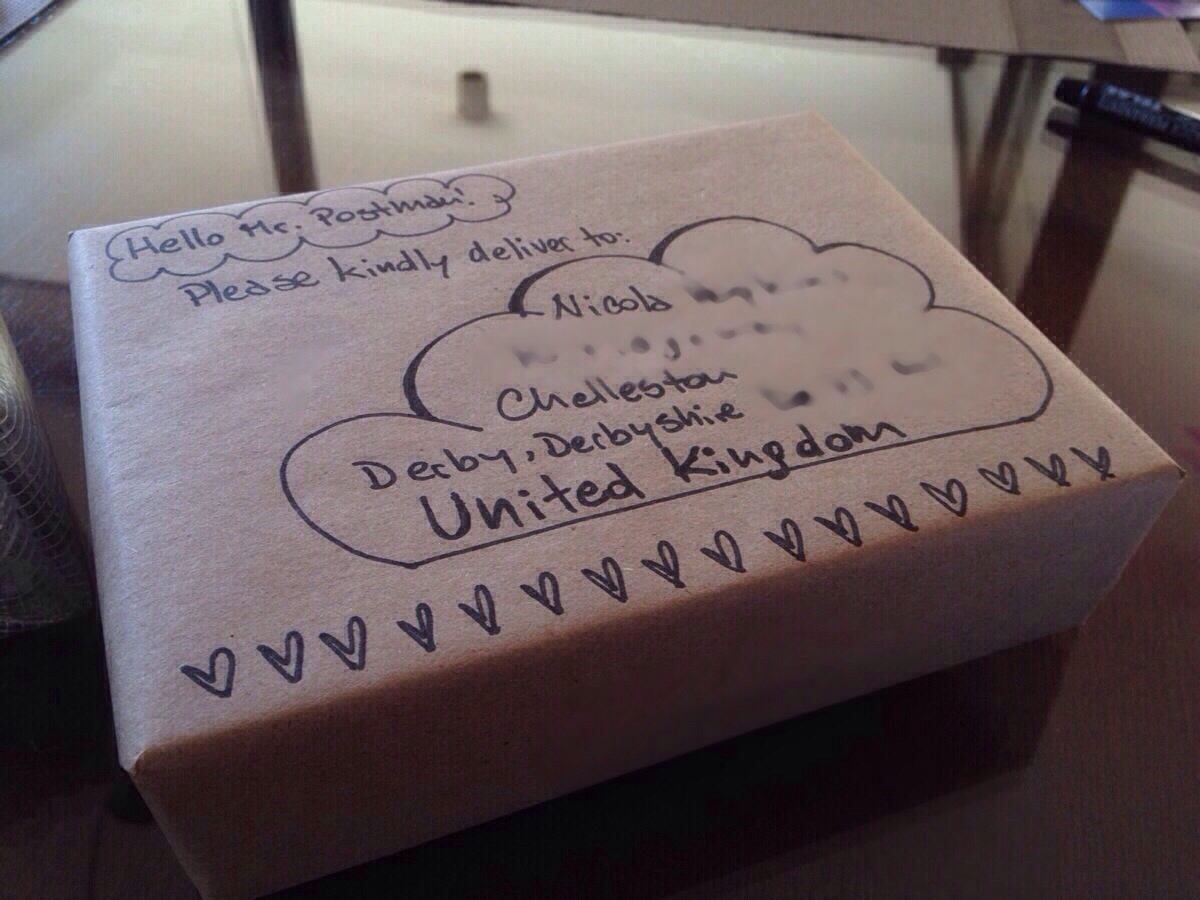 Hello Mr. Postman!
Please kindly deliver to:
Nicola
Chelleston
Derby, Derbyshire
United Kingdom